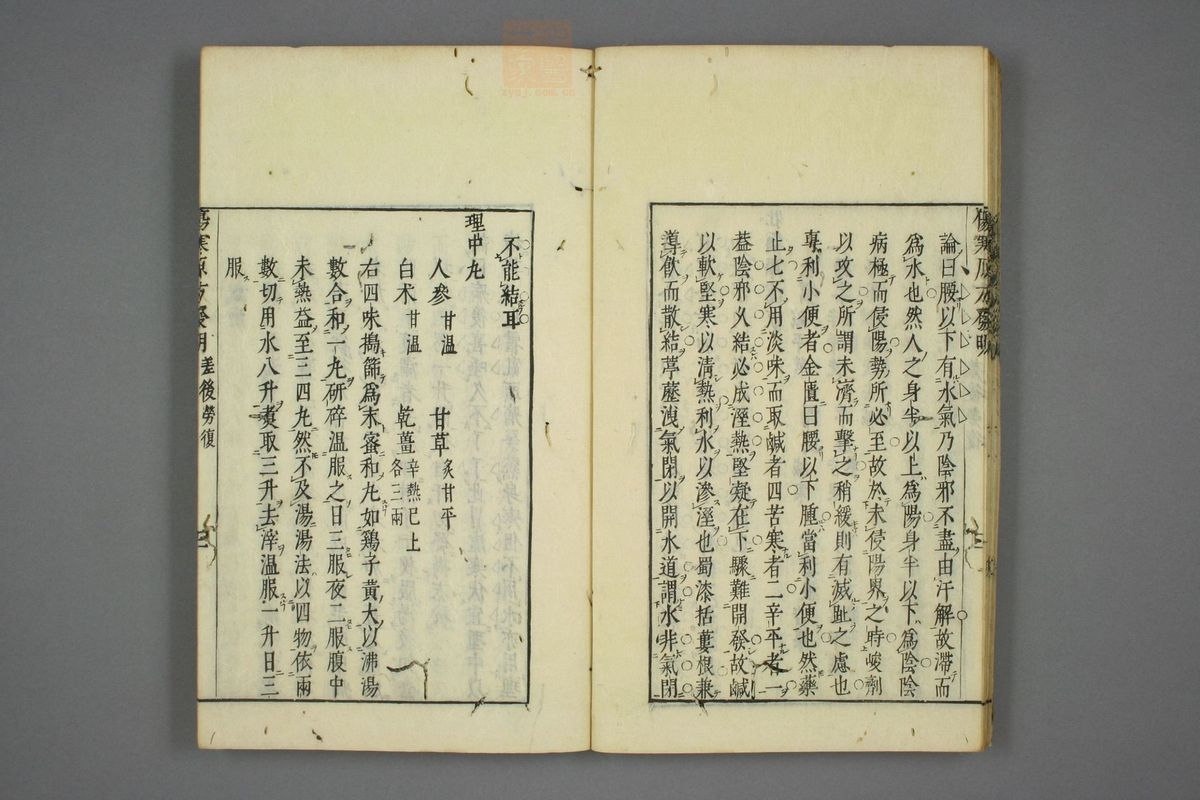 論曰腰以下有水氣乃陰邪不盡由汗解故滯而
爲水也然人之身半以上爲陽身半以下爲陰陰
病極而侵陽勢所必至故於未侵陽界之時峻劑
以攻之所謂未濟而擊之稍緩則有滅趾之慮也
專利小便者金匱曰腰以下腫當利小便也然藥
止七不用淡味而取鹹者四苦寒者二辛平者一
葢陰邪久結必成溼熱堅凝在下驟難開發故鹹
以軟堅寒以清熱利水以滲溼也蜀漆括蔞根兼
導飲而散結葶藶洩氣閉以開水道謂水非氣閉
不能結耳
理中丸
人參甘溫 甘草炙甘平
白术甘溫 乾薑辛熱已上各三兩
右四味搗篩爲末蜜和丸如鶏子黃大以沸湯
數合和一丸研碎溫服之日三服夜二服腹中
未熱益至三四丸然不及湯湯法以四物依兩
數切用水八升煑取三升去滓溫服一升日三
服
差後勞復
zysj.com.cn